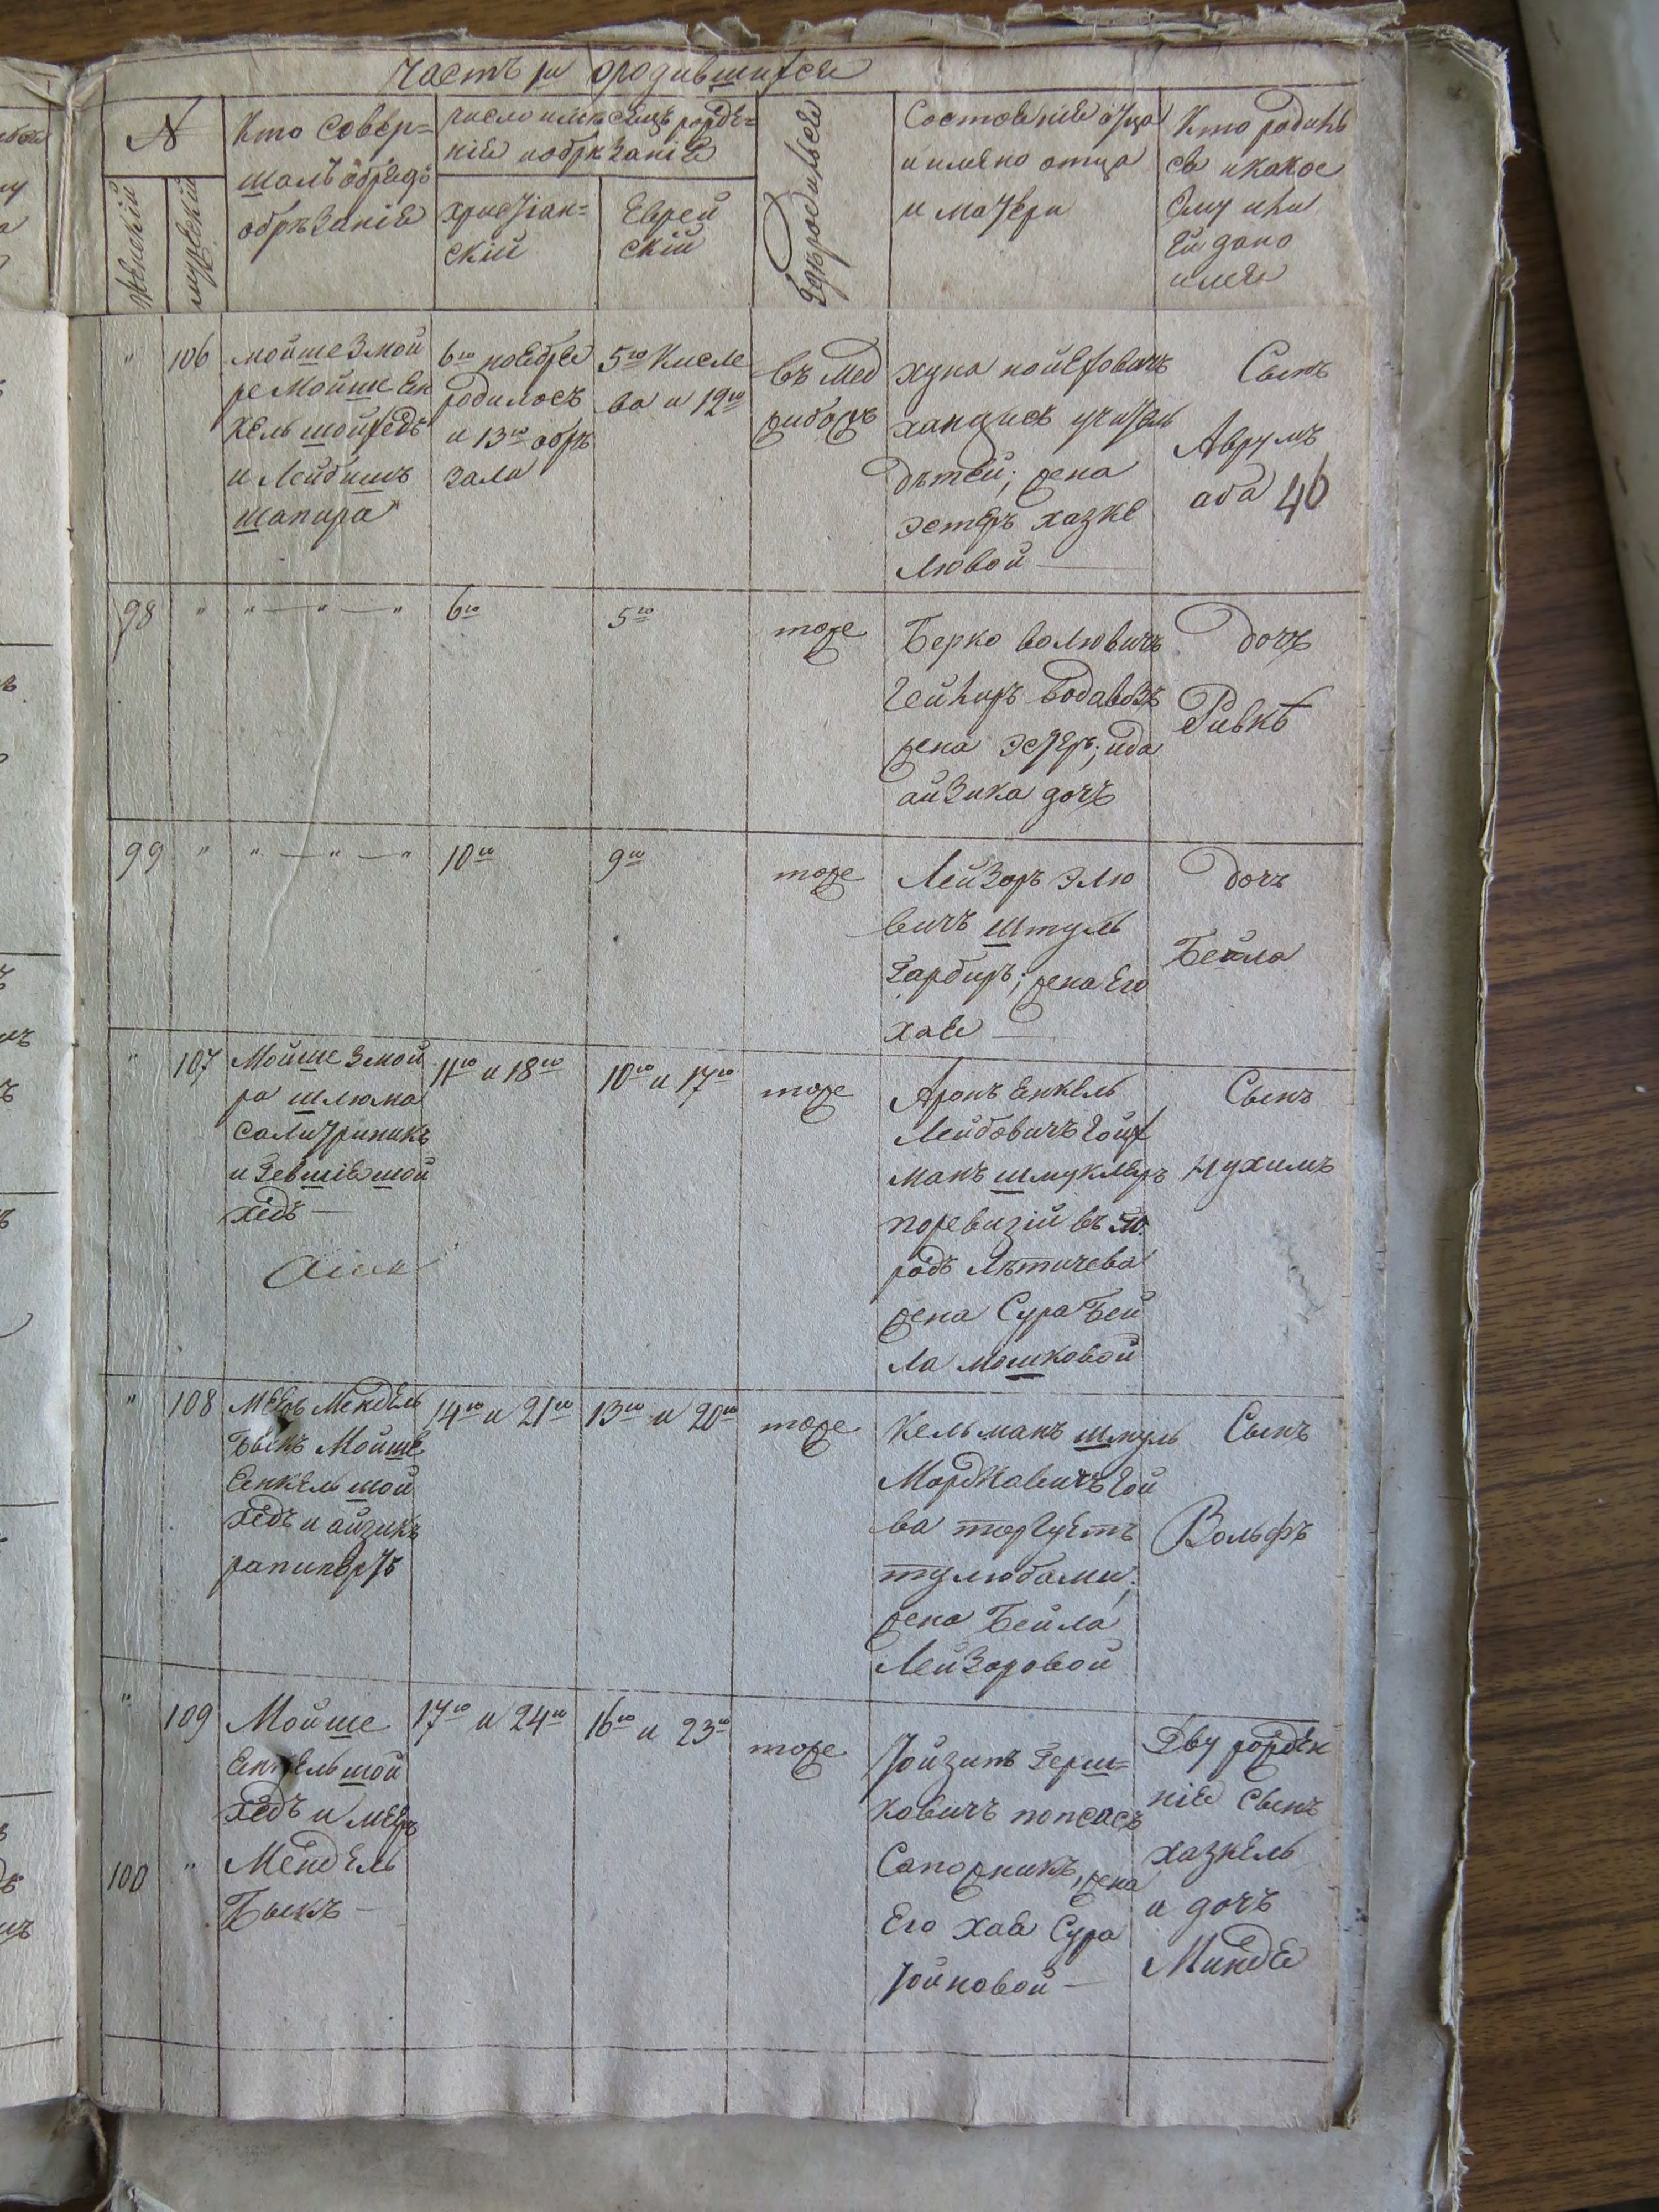 Часть ры ородившихся
№
женский
мужеский
Кто совер=
шалъ обрядъ
обрѣзанія
число имѣсяцъ рожде=
нія иобрѣзанія
христіан=
скій
Еврей
скій
Где родился
Состояніе отца
и имяно отца
и матери
Кто родилъ
ся икакое
Ему или
Ей дано
имя
" 106
мойше Змой
ре Мойше Ен
кель шойхедъ
и Лейбишъ
шапира
6го ноября
родилось
и 13го обрѣ
зали
5го Кисле
ва и 12го
въ мед
жибожъ
хуна
хандисъ учитель
дѣтей; жена
эстеръ хазке
лювой
Сынъ
Аврумъ
аба 46
98 " " — " — "
6го
5го
тоже
Берко волювичъ
водавозъ
жена эстеръ; ида
айзика дочъ
дочъ
Ривкѣ
99 " " — " — "
10го
9го
тоже
Лейзоръ Элю
вичъ Штуль
Гарбиръ; жена Его
хая
дочъ
Бейла
" 107
Мойше Змой
ра шлюма
салитриникъ
и Гевшіяшой
хедъ
11го и 18го
10го и 17го
тоже
Аронъ Енкель
Лейбовичъ Гойх
манъ шмуклеръ
поревизій въ го
родѣ Лѣтичева
жена Сура Бей
ла мошковой
Сынъ
Нухимъ
" 108
Мееръ Мендель
Быкъ Мойше
Енкель шой
хедъ и айзикъ
рапипортъ
14го и 21го
13го и 20го
тоже
Кельманъ шмуль
Мордкавичъ Гой
ва торгуетъ
тулюбами;
жена Бейла
Лейзоровой
Сынъ
Вольфъ
" 109
Мойше
Енкельшой
хедъ и мееръ
100 " Мендель
Быкъ
17го и 24го
16го и 23го
тоже
Герш=
ковичъ
Сапожникъ, жена
Его хая Сура
Двурожден
нія Сынъ
хазкель
и дочъ
Миндя